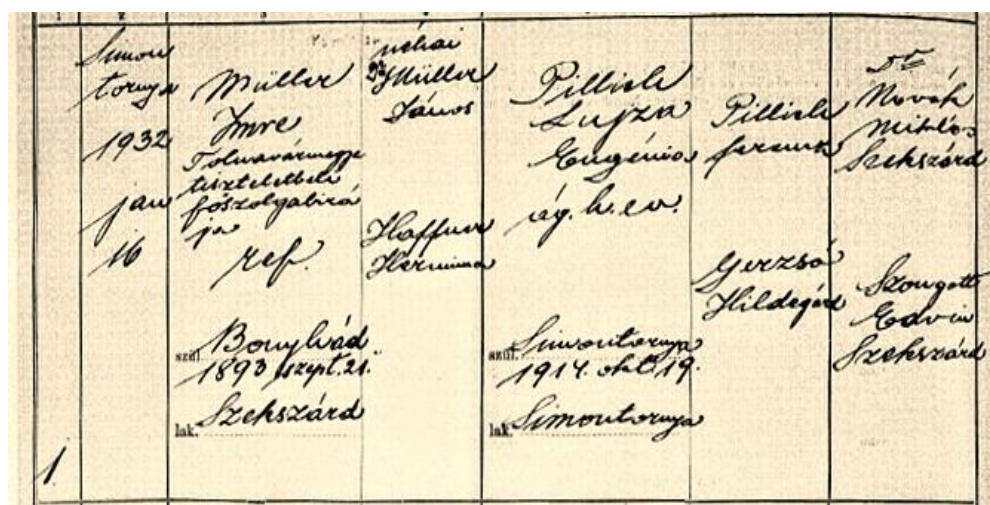 1.
Simon
tornya
1932
jan
16
Müller
Imre
Tolnavármegye
tiszteletbeli
főszolgabirá
ja
ref.
szül. Bonyhád
1893 szept. 21.
lak. Szekszárd
néhai
Dr Müller
János
Haffner
Hermina
Pillich
Lujza
Eugénia
ág. h. ev.
szül. Simontornya
1914. okt. 19.
lak. Simontornya
Pillich
Ferenc
Gerzsó
Hildegárd
Dr
Novák
Miklós
Szekszárd
Szongott
Edvin
Szekszárd